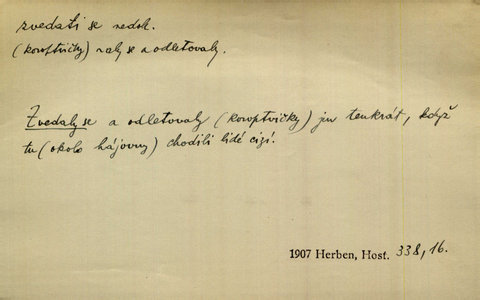 zvedati se nedok.
(koroptvičky) zvedaly se a odletovaly.
Zvedaly se a odletovaly (koroptvičky) jen tenkrát, když
tu (okolo hájovny) chodili lidé cizí.
1907 Herben, Host. 338, 16.